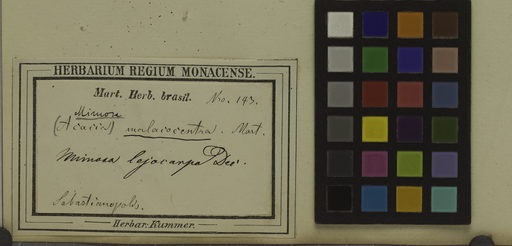 HERBARIUM REGIUM MONACENSE.
Mart. Herb. brasil. Nro. 143.
Mimosa
(Acacia) malacocentra. Mart.
Mimosa lejocarpa DeC.
Sebastianopolis.
Herbar. Kummer.